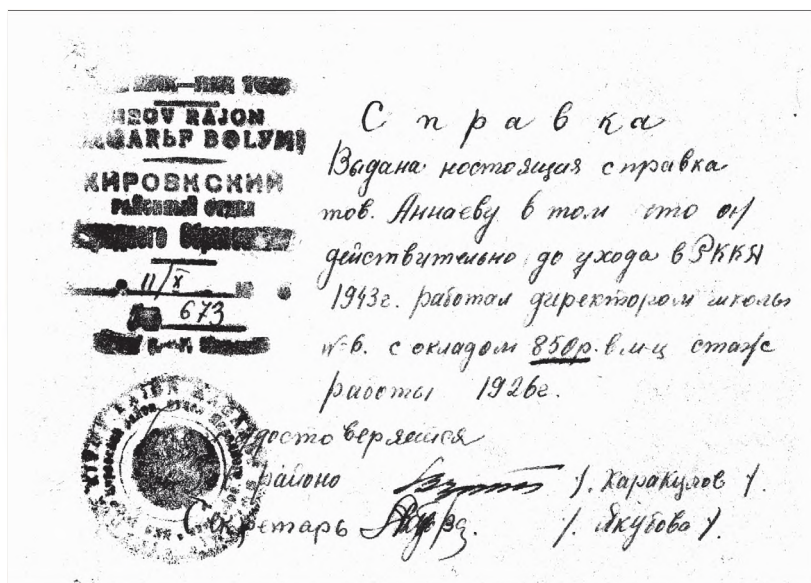 KIROV RAJON
MAGARЬF BOLYMI
КИРОВКСКИЙ
РАЙОННЫЙ ОТДЕЛ
Народного Образования
11/X
№ 673
Справка
Выдана ностоящия справка
тов. Аннаеву в том что он
действительно до ухода в РККА
1943г. работал директором школы
№6. с окладом 850р. в м-ц стаж
работы 1926г.
удостоверяшися
районо /. Каракулов /.
Секретарь /. Якубова /.